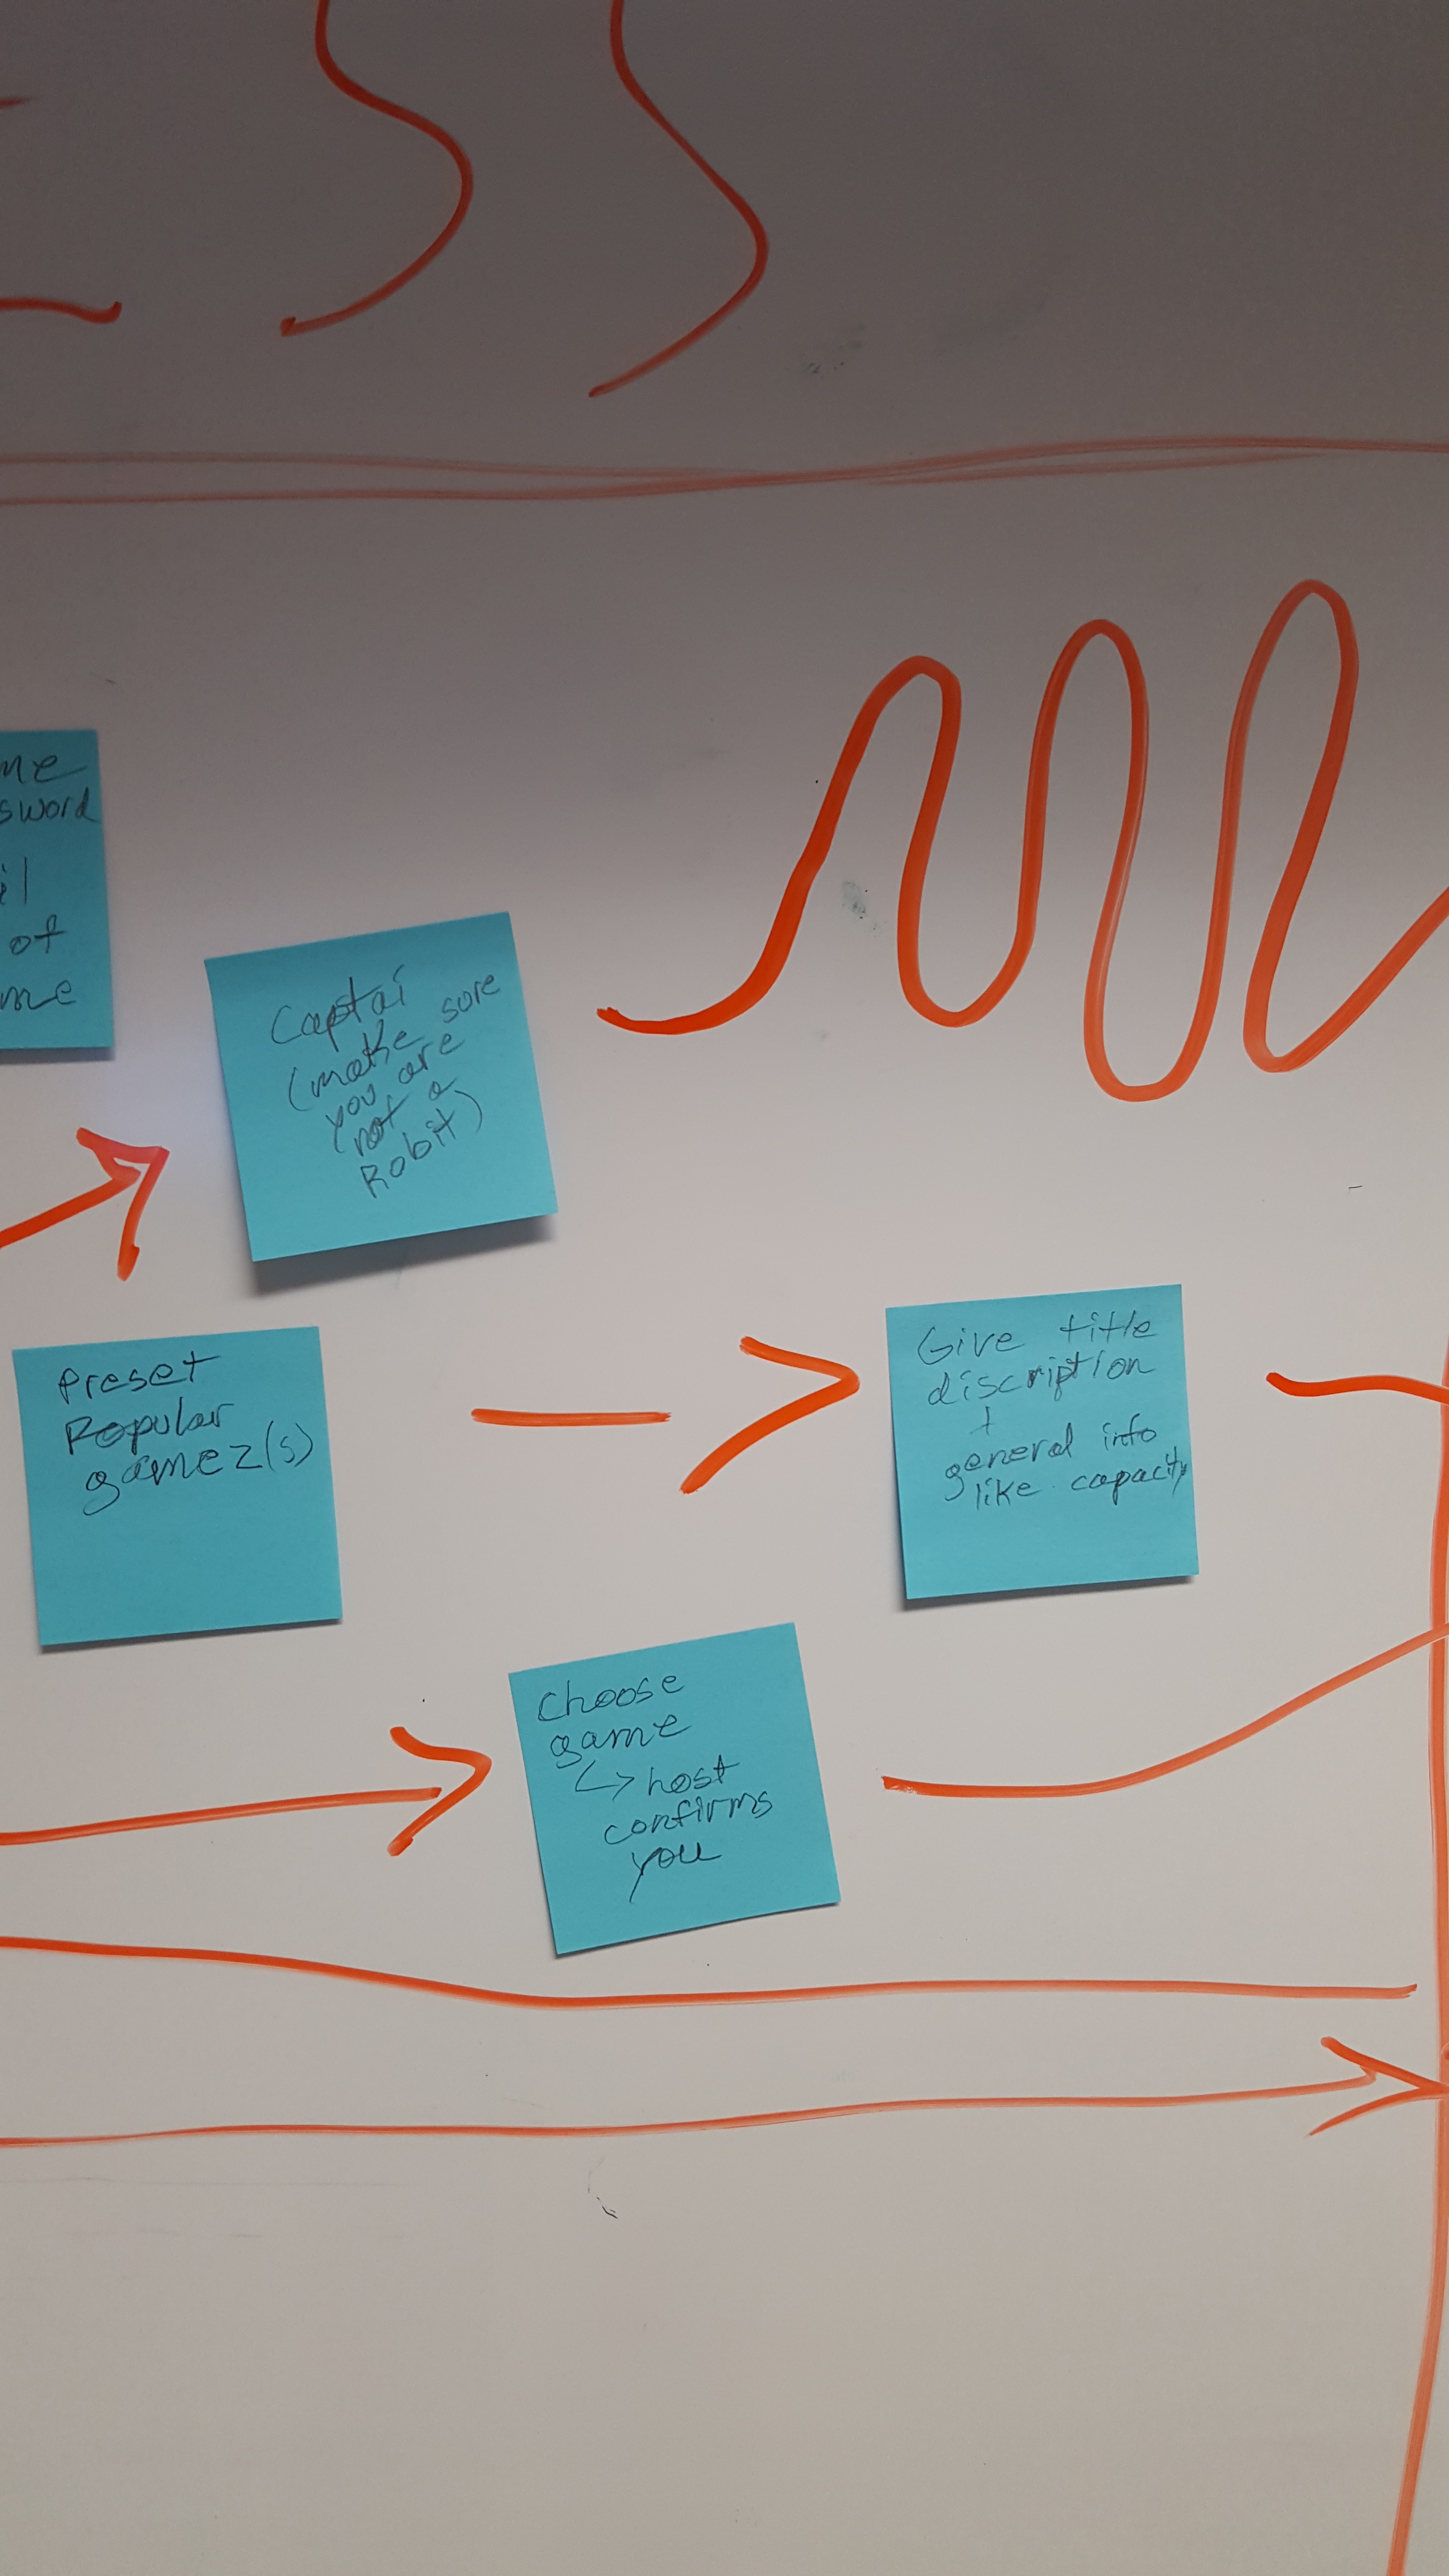 me
sword
il
of
me
Captai
(make sure
you are
(not a
Robit)
Preset
Popular
gamez(s)
Give title
discription
+
general info
like capacity
Choose
game
↳ host
confirms
you